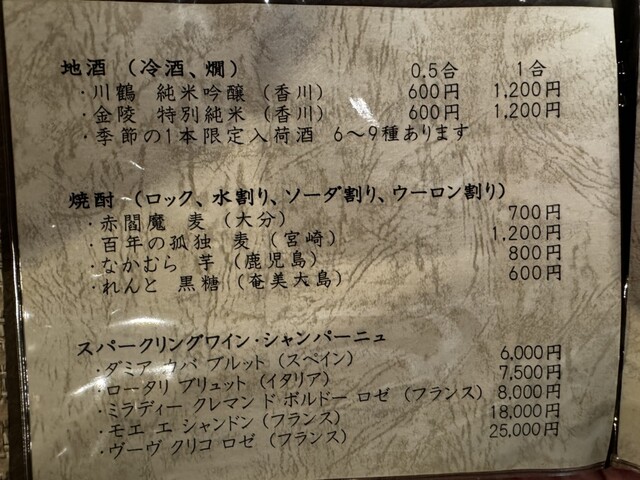 地酒（冷酒、燗） 0.5合 1合
・川鶴 純米吟醸（香川） 600円 1,200円
・金陵 特別純米（香川） 600円 1,200円
・季節の1本限定入荷酒 6～9種あります
焼酎（ロック、水割り、ソーダ割り、ウーロン割り）
・赤閻魔 麦（大分） 700円
・百年の孤独 麦（宮崎） 1,200円
・なかむら 芋（鹿児島） 800円
・れんと 黒糖（奄美大島） 600円
スパークリングワイン・シャンパーニュ
・ダミア カバ ブルット（スペイン） 6,000円
・ロータリ ブリュット（イタリア） 7,500円
・ミラディー クレマン ド ボルドー ロゼ（フランス） 8,000円
・モエ エ シャンドン（フランス） 18,000円
・ヴーヴ クリコ ロゼ（フランス） 25,000円